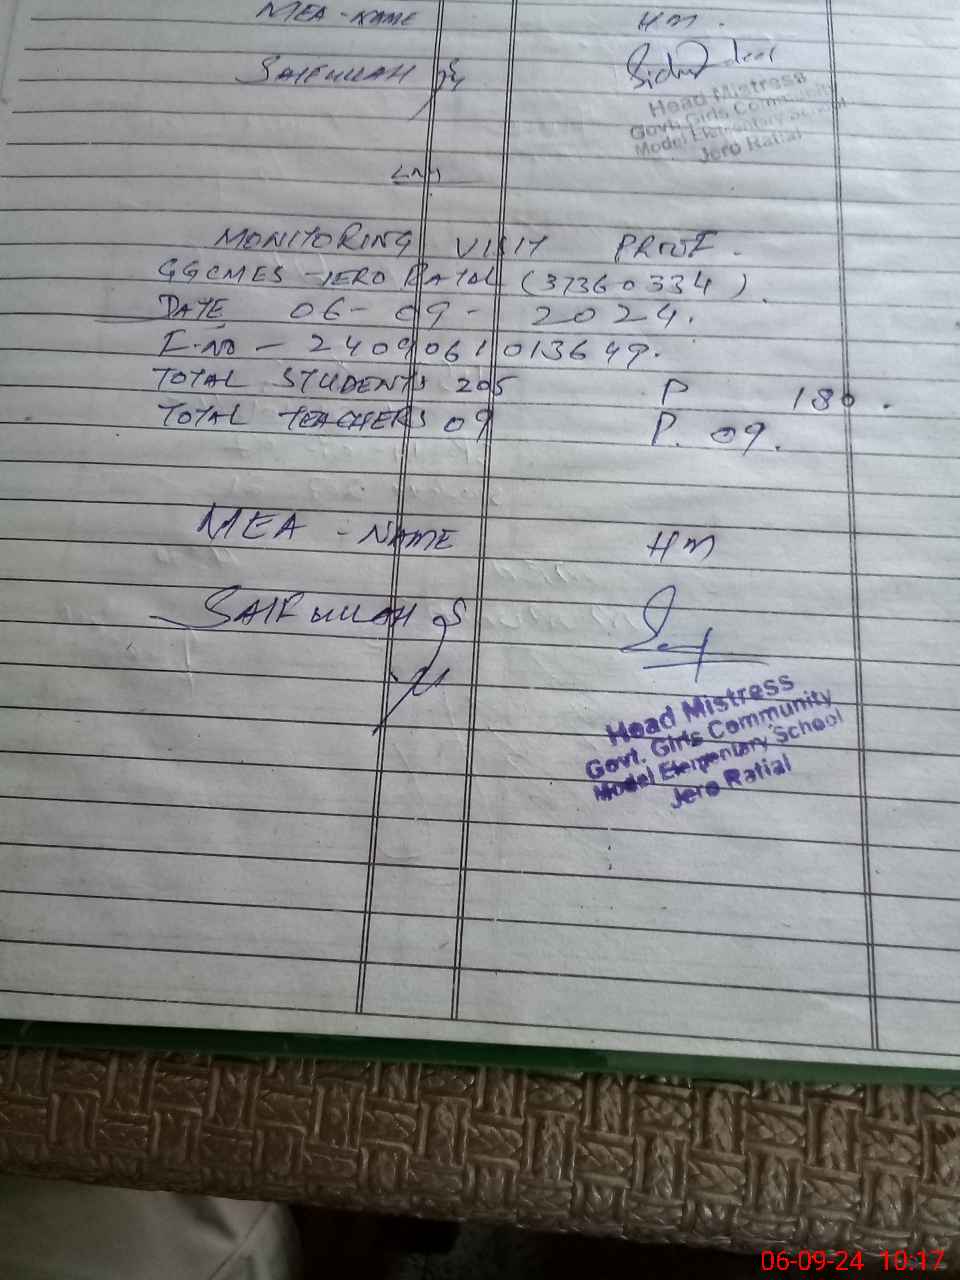 MEA - NAME HM.
SAIFULLAH
Head Mistress
Govt. Girls Community
Model Elementary School
Jero Ratial
MONITORING VISIT PROOF.
GGCMES JERO RATAL (37360334).
DATE 06-09-2024.
E-NO - 2409061013649.
TOTAL STUDENTS 205 P 180.
TOTAL TEACHERS 09 P. 09.
MEA - NAME HM
SAIFULLAH
Head Mistress
Govt. Girls Community
Model Elementary School
Jero Ratial
06-09-24 10:17